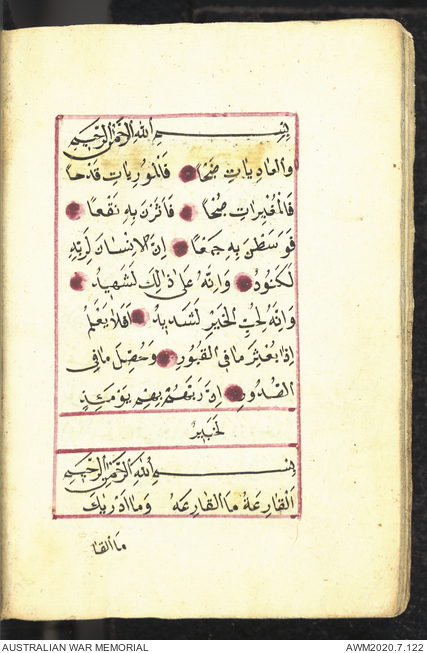 بِسْمِ اللهِ الرَّحْمٰنِ الرَّحِيمِ
وَالْعَادِيَاتِ ضَبْحًا فَالْمُورِيَاتِ قَدْحًا
فَالْمُغِيرَاتِ صُبْحًا فَاَثَرْنَ بِهِ نَقْعًا
فَوَسَطْنَ بِهِ جَمْعًا اِنَّ الْاِنْسَانَ لِرَبِّهِ
لَكَنُودٌ وَاِنَّهُ عَلٰى ذٰلِكَ لَشَهِيدٌ
وَاِنَّهُ لِحُبِّ الْخَيْرِ لَشَدِيدٌ اَفَلَا يَعْلَمُ
اِذَا بُعْثِرَ مَا فِى الْقُبُورِ وَحُصِّلَ مَا فِى
الصُّدُورِ اِنَّ رَبَّهُمْ بِهِمْ يَوْمَئِذٍ
لَخَبِيرٌ
بِسْمِ اللهِ الرَّحْمٰنِ الرَّحِيمِ
اَلْقَارِعَةُ مَا الْقَارِعَه وَمَا اَدْرٰيكَ
ما القا
AUSTRALIAN WAR MEMORIAL AWM2020.7.122